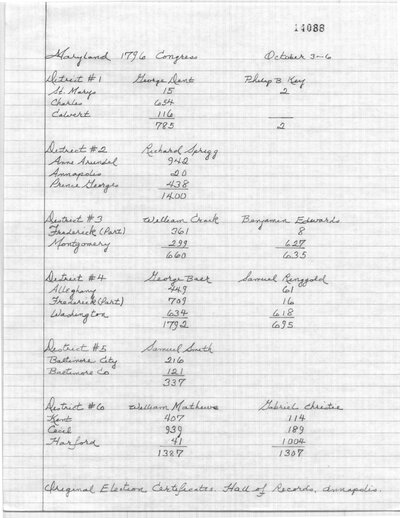 14088
Maryland 1796 Congress October 3-6
District #1 George Dent Philip B. Key
St. Marys 15 2
Charles 654
Calvert 116
785 2
District #2 Richard Sprigg
Anne Arundel 942
Annapolis 20
Prince Georges 438
1400
District #3 William Craik Benjamin Edwards
Frederick (Part) 361 8
Montgomery 299 627
660 635
District #4 George Baer Samuel Ringgold
Alleghany 449 61
Frederick (Part) 709 16
Washington 634 618
1792 695
District #5 Samuel Smith
Baltimore City 216
Baltimore Co 121
337
District #6 William Mathews Gabriel Christie
Kent 407 114
Cecil 939 189
Harford 41 1004
1387 1307
Original Election Certificates. Hall of Records, Annapolis.